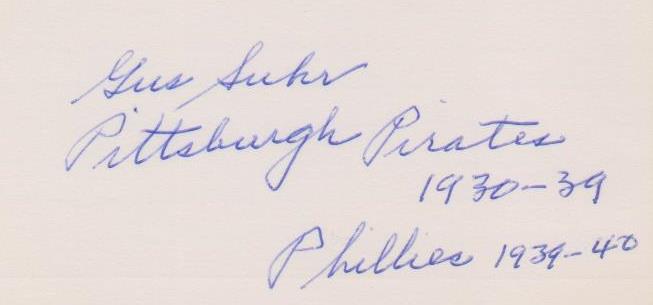 Gus Suhr
Pittsburgh Pirates
1930-39
Phillies 1939-40